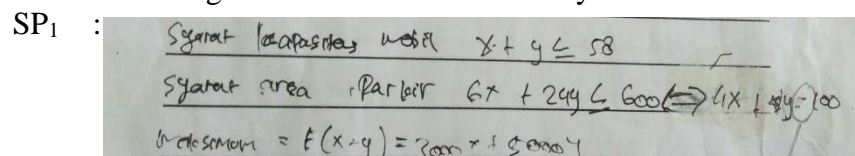 SP₁ :
Syarat kapasitas mobil x + y ≤ 58
Syarat area parkir 6x + 24y ≤ 600 ⇔ x + y = 100
= f(x-y) = 2000x + 5000y